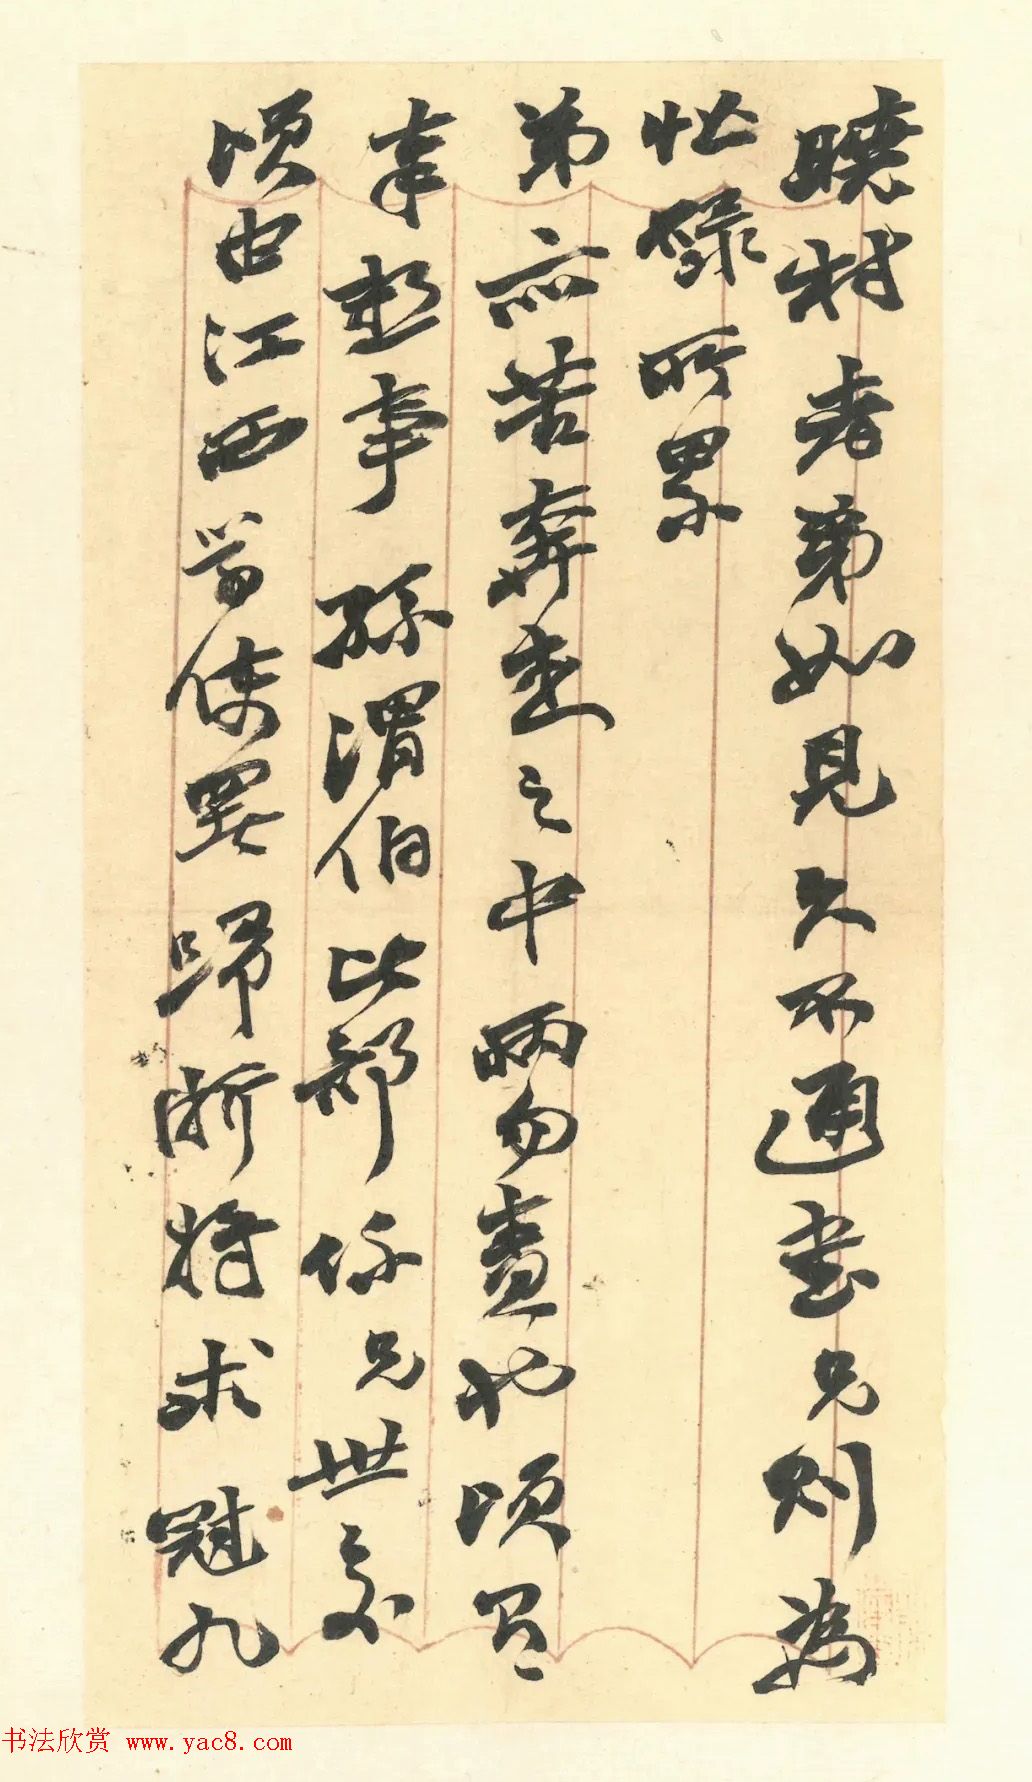 曉村老弟如見久不通書兄則為
忙碌所累
弟亦苦奔走之中兩勿盡也頃有
奉懇事孫渭伯比部係兄世交
頃由江西學使署歸浙將求冠九
书法欣赏 www.yac8.com